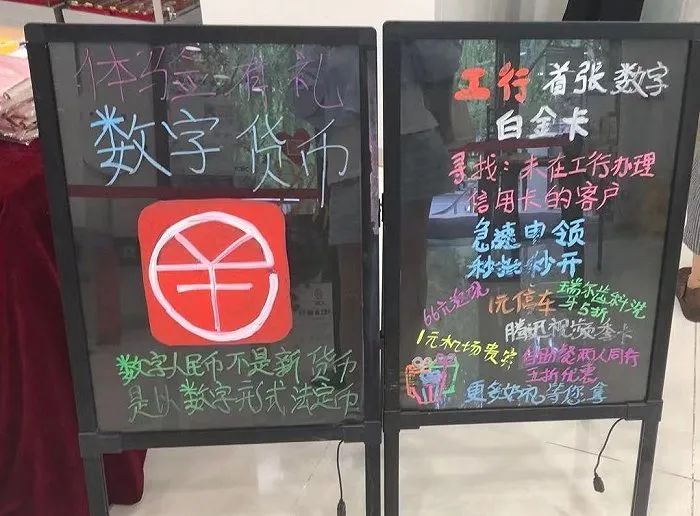 体验有礼
数字货币
数字人民币不是新货币
是以数字形式法定币
工行首张数字
白金卡
寻找:未在工行办理
信用卡的客户
急速申领
秒批秒开
66元
1元停车
瑞尔齿科洗
牙5折
腾讯视频季卡
1元机场贵宾
自助餐两人同行
五折优惠
更多好礼等您拿